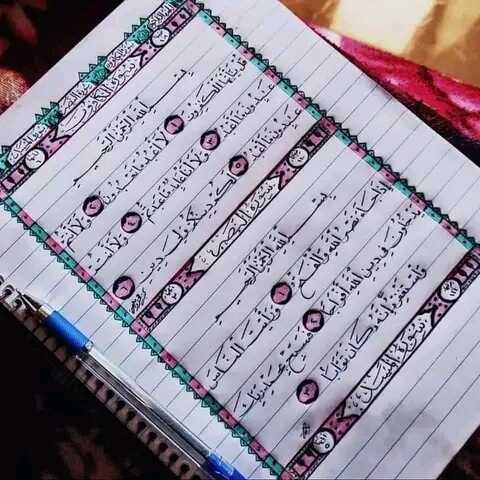 سورة الكافرون
بسم الله الرحمن الرحيم
قل يأيها الكفرون ١ لا أعبد ما تعبدون ٢ ولا أنتم
عبدون ما أعبد ٣ ولا أنا عابد ما عبدتم ٤ ولا أنتم
عبدون ما أعبد ٥ لكم دينكم ولي دين ٦
سورة النصر
بسم الله الرحمن الرحيم
إذا جاء نصر الله والفتح ١ ورأيت الناس
يدخلون في دين الله أفواجا ٢ فسبح بحمد ربك
واستغفره إنه كان توابا ٣
سورة المسد